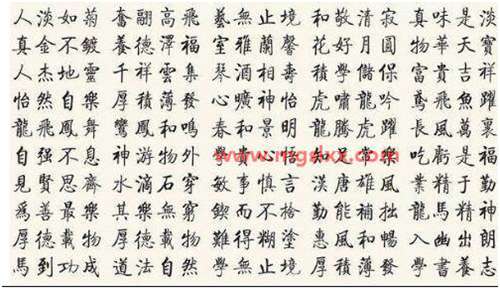 人淡如菊 奮翮高飛 藝無止境 和敬清寂 真味是淡
真金不鍍 養德澤福 室雅蘭馨 花好月圓 物華天寶
人杰地靈 千祥雲集 琴酒相壽 積學儲保 富貴吉祥
怡然自樂 厚積薄發 心曠神怡 虎嘯龍吟 鳶飛魚躍
龍飛鳳舞 鸞鳳和鳴 春和景明 龍騰虎躍 長風萬裏
自强不息 神游物外 心怡 知足常樂 吃虧是福
見賢思齊 水滴石穿 敏事慎言 漢唐雄風 業精于勤
爲善最樂 其樂無窮 鍥而不捨 勤能補拙 龍馬精神
厚德載物 厚德載物 難得糊塗 惠風和暢 入幽出朗
馬到功成 道法自然 學無止境 厚積薄發 學書養志